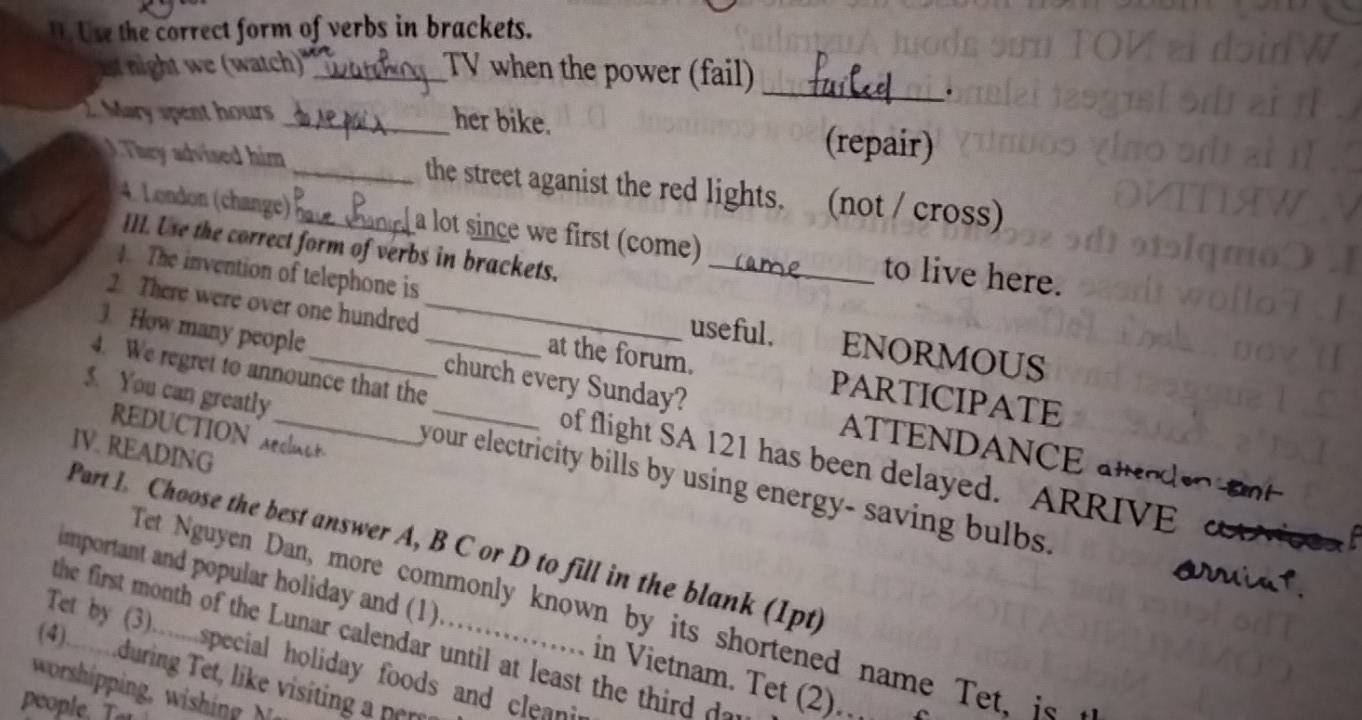 II. Use the correct form of verbs in brackets.
night we (watch) were watching TV when the power (fail) failed.
2. Mary spent hours to repair her bike. (repair)
3. They advised him ________ the street aganist the red lights. (not / cross)
4. London (change) have changed a lot since we first (come) came to live here.
III. Use the correct form of verbs in brackets.
1. The invention of telephone is ________ useful. ENORMOUS
2. There were over one hundred ________ at the forum. PARTICIPATE
3. How many people ________ church every Sunday? ATTENDANCE
4. We regret to announce that the ________ of flight SA 121 has been delayed. ARRIVE
arrivat.
5. You can greatly ________ your electricity bills by using energy- saving bulbs.
REDUCTION
IV. READING
Part I. Choose the best answer A, B C or D to fill in the blank (1pt)
Tet Nguyen Dan, more commonly known by its shortened name Tet, is
important and popular holiday and (1)............... in Vietnam. Tet (2)...
the first month of the Lunar calendar until at least the third
Tet by (3).......special holiday foods and
(4)........during Tet, like visiting a
worshipping, wishing
people.